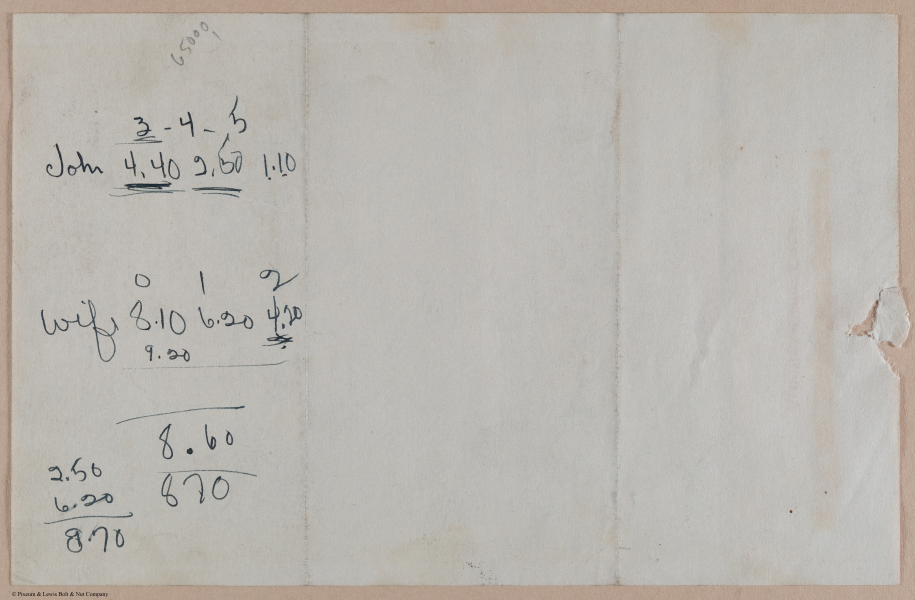 65000
3 - 4 - 5
John 4.40 2.50 1.10
0 1 2
Wife 8.10 6.20 4.20
9.20
8.60
870
2.50
6.20
8.70
© Piseum & Lewis Bolt & Nut Company